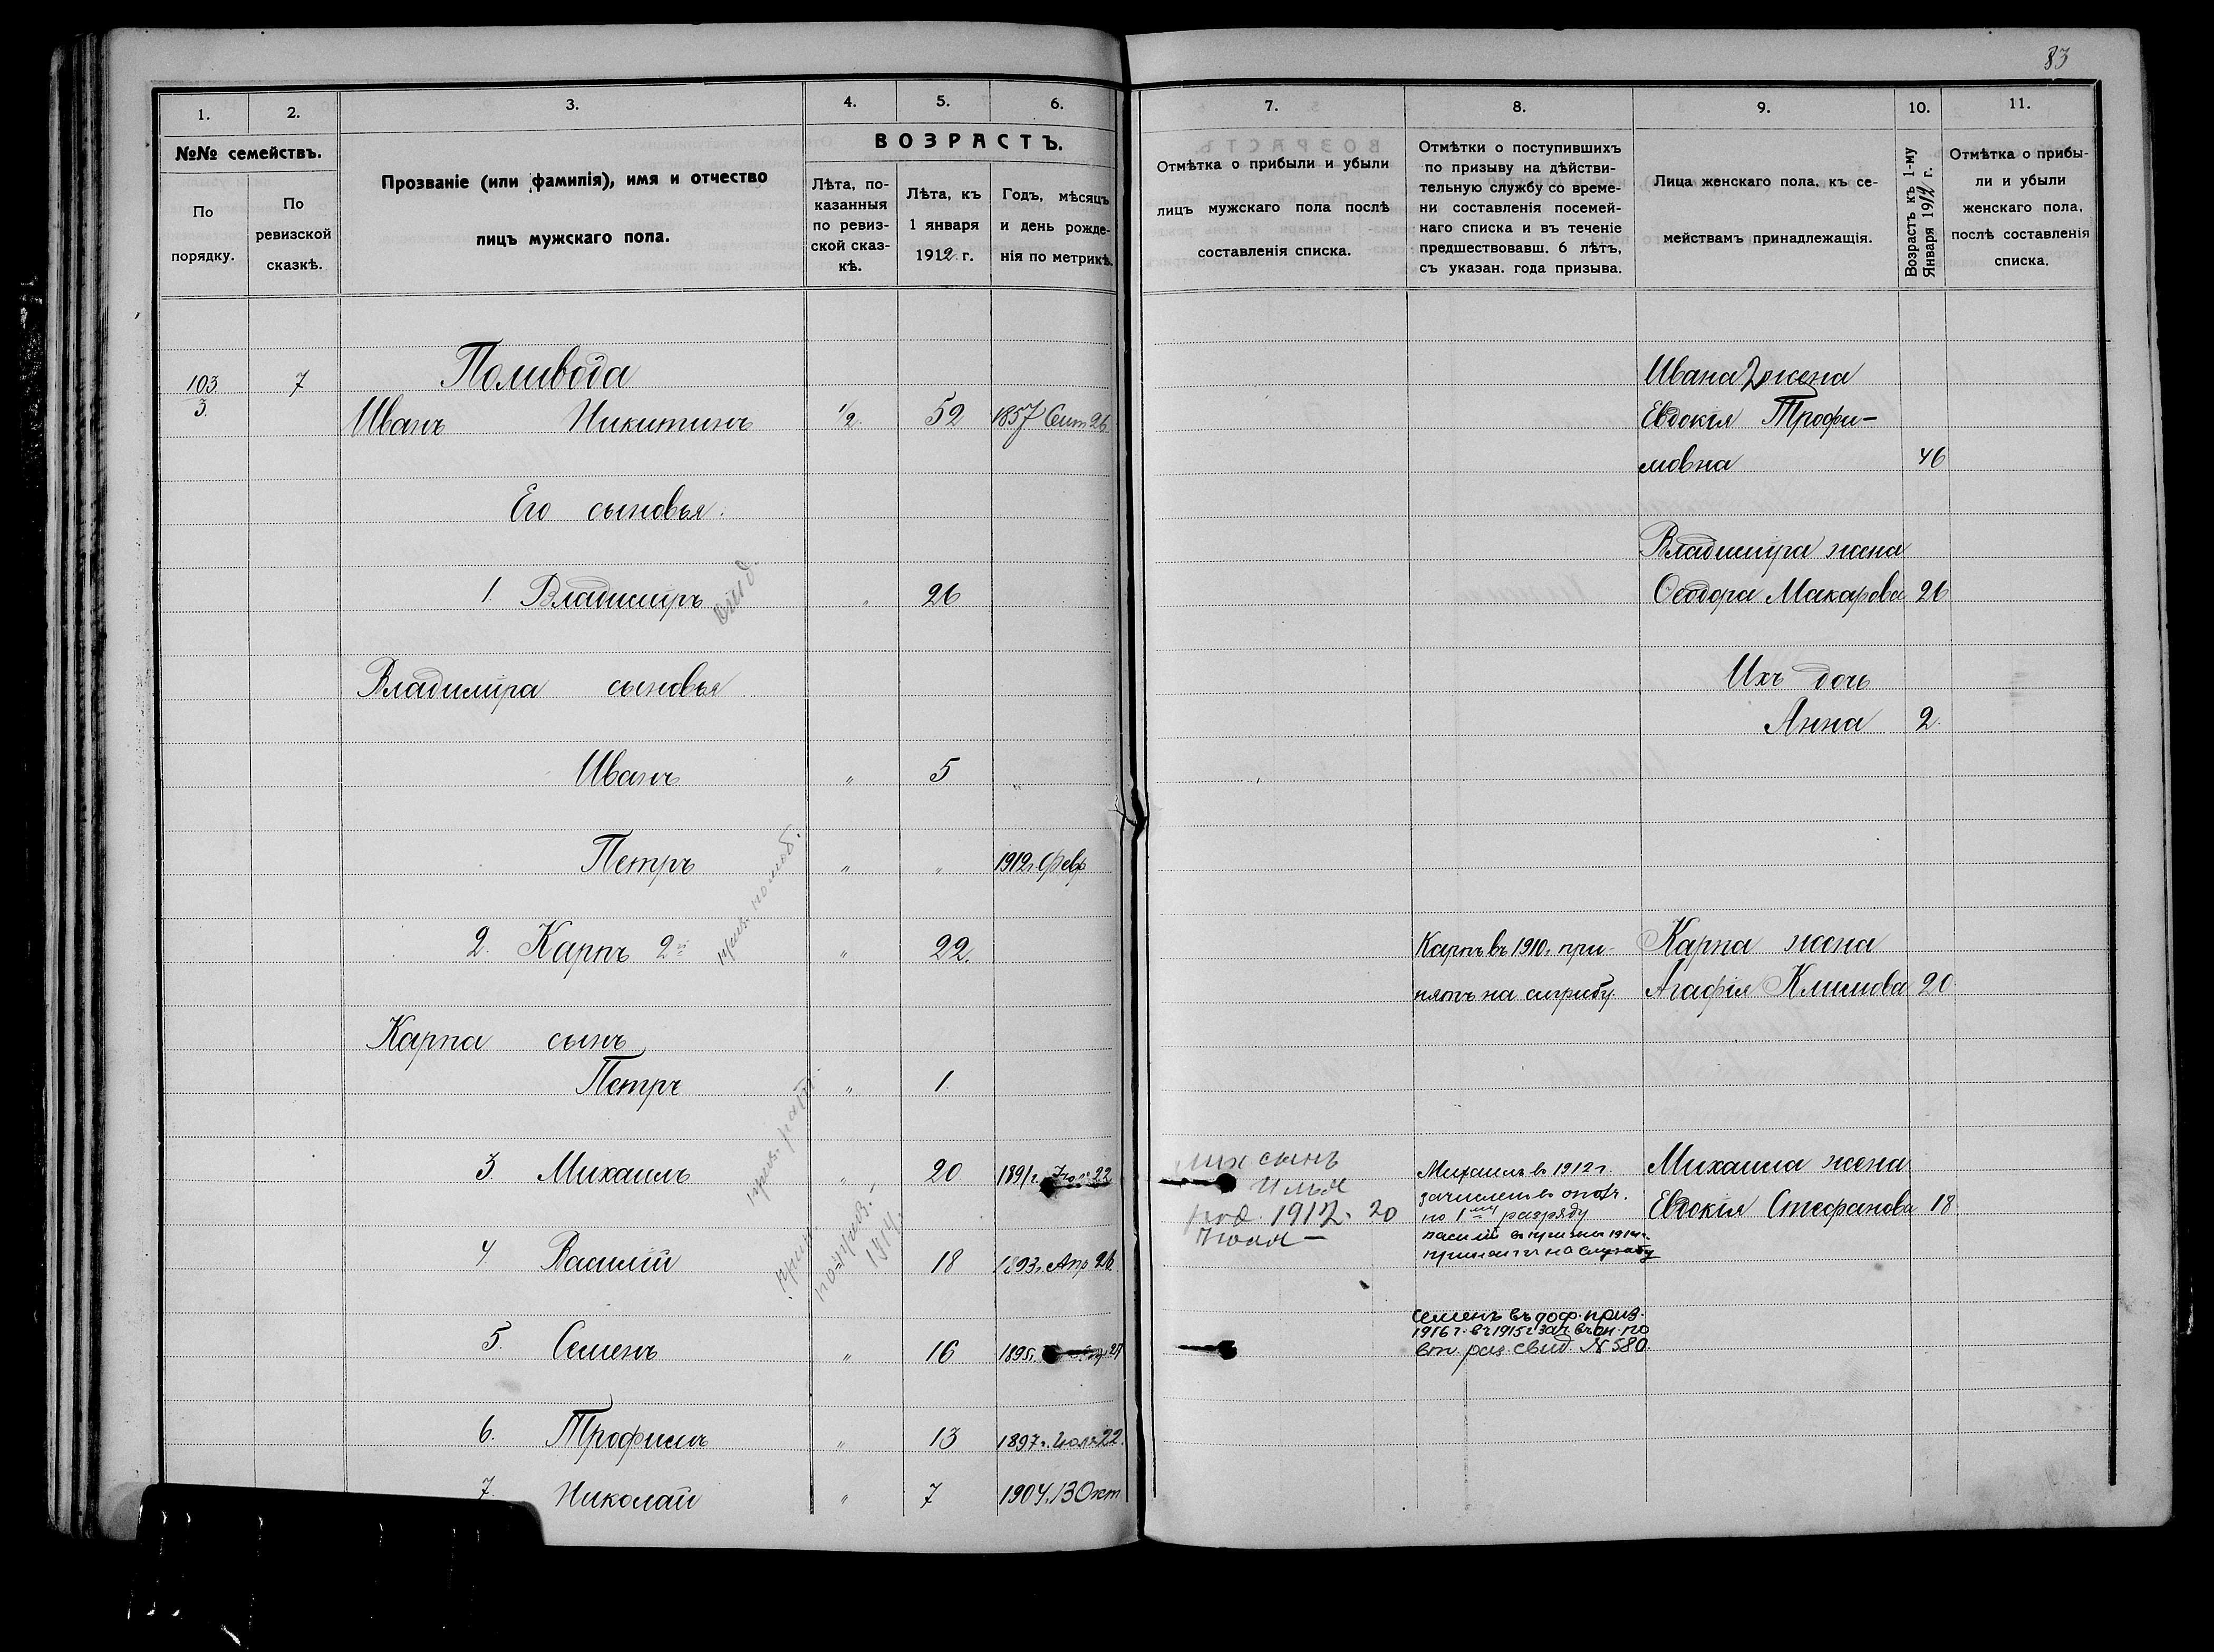 83
1. 2. 3. 4. 5. 6.
№№ семействъ.
По порядку.
По ревизской сказкѣ.
Прозваніе (или фамилія), имя и отчество
лицъ мужскаго пола.
ВОЗРАСТЪ.
Лѣта, по-
казанныя
по ревиз-
ской сказ-
кѣ.
Лѣта, къ
1 января
1912 г.
Годъ, мѣсяцъ
и день рожде-
нія по метрикѣ.
103 7 Поливода
3. Иванъ Никитинъ 1/2 52 1857 Сент 26
Его сыновья.
1 Владиміръ " 26
Владиміра сыновья
Иванъ " 5 "
Петръ " " 1912 г. Февр
2. Карпъ 2й " 22.
Карпа сынъ
Петръ " 1
3. Михаилъ " 20 1891 г. 22
4 Василій 18 1893 г. Апр 26
1914.
5. Семенъ " 16 1895 г. 27
6. Трофимъ " 13 1897 г. Іюл 22.
7. Николай " 7 1904. 13 Окт
7. 8. 9. 10. 11.
Отмѣтка о прибыли и убыли
лицъ мужскаго пола послѣ
составленія списка.
Отмѣтки о поступившихъ
по призыву на дѣйстви-
тельную службу со време-
ни составленія посемей-
наго списка и въ теченіе
предшествовавш. 6 лѣтъ,
съ указан. года призыва.
Лица женскаго пола, къ се-
мействамъ принадлежащія.
Возрастъ къ 1-му
Января 1912 г.
Отмѣтка о прибы-
ли и убыли
женскаго пола,
послѣ составленія
списка.
Ивана 2 жена
Евдокія Трофи-
мовна 46
Владиміра жена
Ѳеодора Макарова 26
Ихъ дочь
Анна 2.
Карпъ въ 1910 г. при- Карпа жена
нятъ на службу. Агафія Климова 20
сынъ
Илья
род. 1912. 20
Михаилъ в 1912 г.
зачисленъ в ополч.
по 1му разряду
Василій в 1914 г.
принятъ на службу
Михаила жена
Евдокія Стефанова 18
Семенъ въ доср. приз.
1916 г. въ 1915 г. зач. въ оп. по
вт. раз. свид. N 580